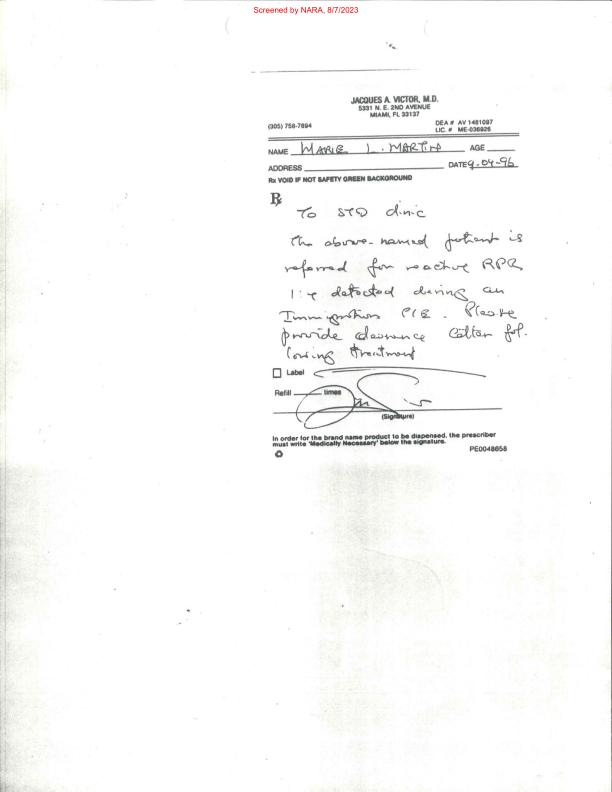 Screened by NARA, 8/7/2023
JACQUES A. VICTOR, M.D.
5331 N. E. 2ND AVENUE
MIAMI, FL 33137
(305) 758-7894
DEA # AV 1481097
LIC. # ME-036926
NAME MARIE L. MARTIN AGE
ADDRESS DATE 9-04-96
Rx VOID IF NOT SAFETY GREEN BACKGROUND
Rx
To STD clinic
The above-named patient is
referred for reactive RPR
1:4 detected during an
Immigration P/E. Please
provide clearance letter fol-
lowing treatment
Label
Refill times
(Signature)
In order for the brand name product to be dispensed, the prescriber
must write 'Medically Necessary' below the signature.
PE0048658